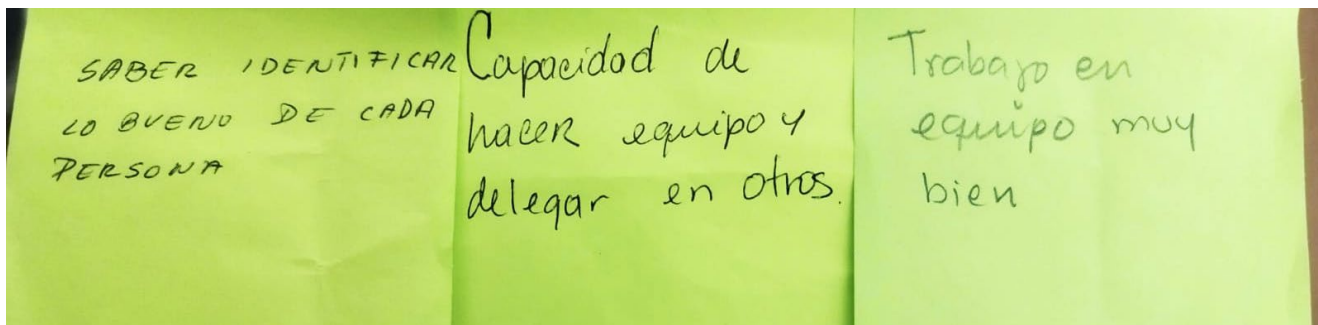 SABER IDENTIFICAR
LO BUENO DE CADA
PERSONA
Capacidad de
hacer equipo y
delegar en otros.
Trabajo en
equipo muy
bien